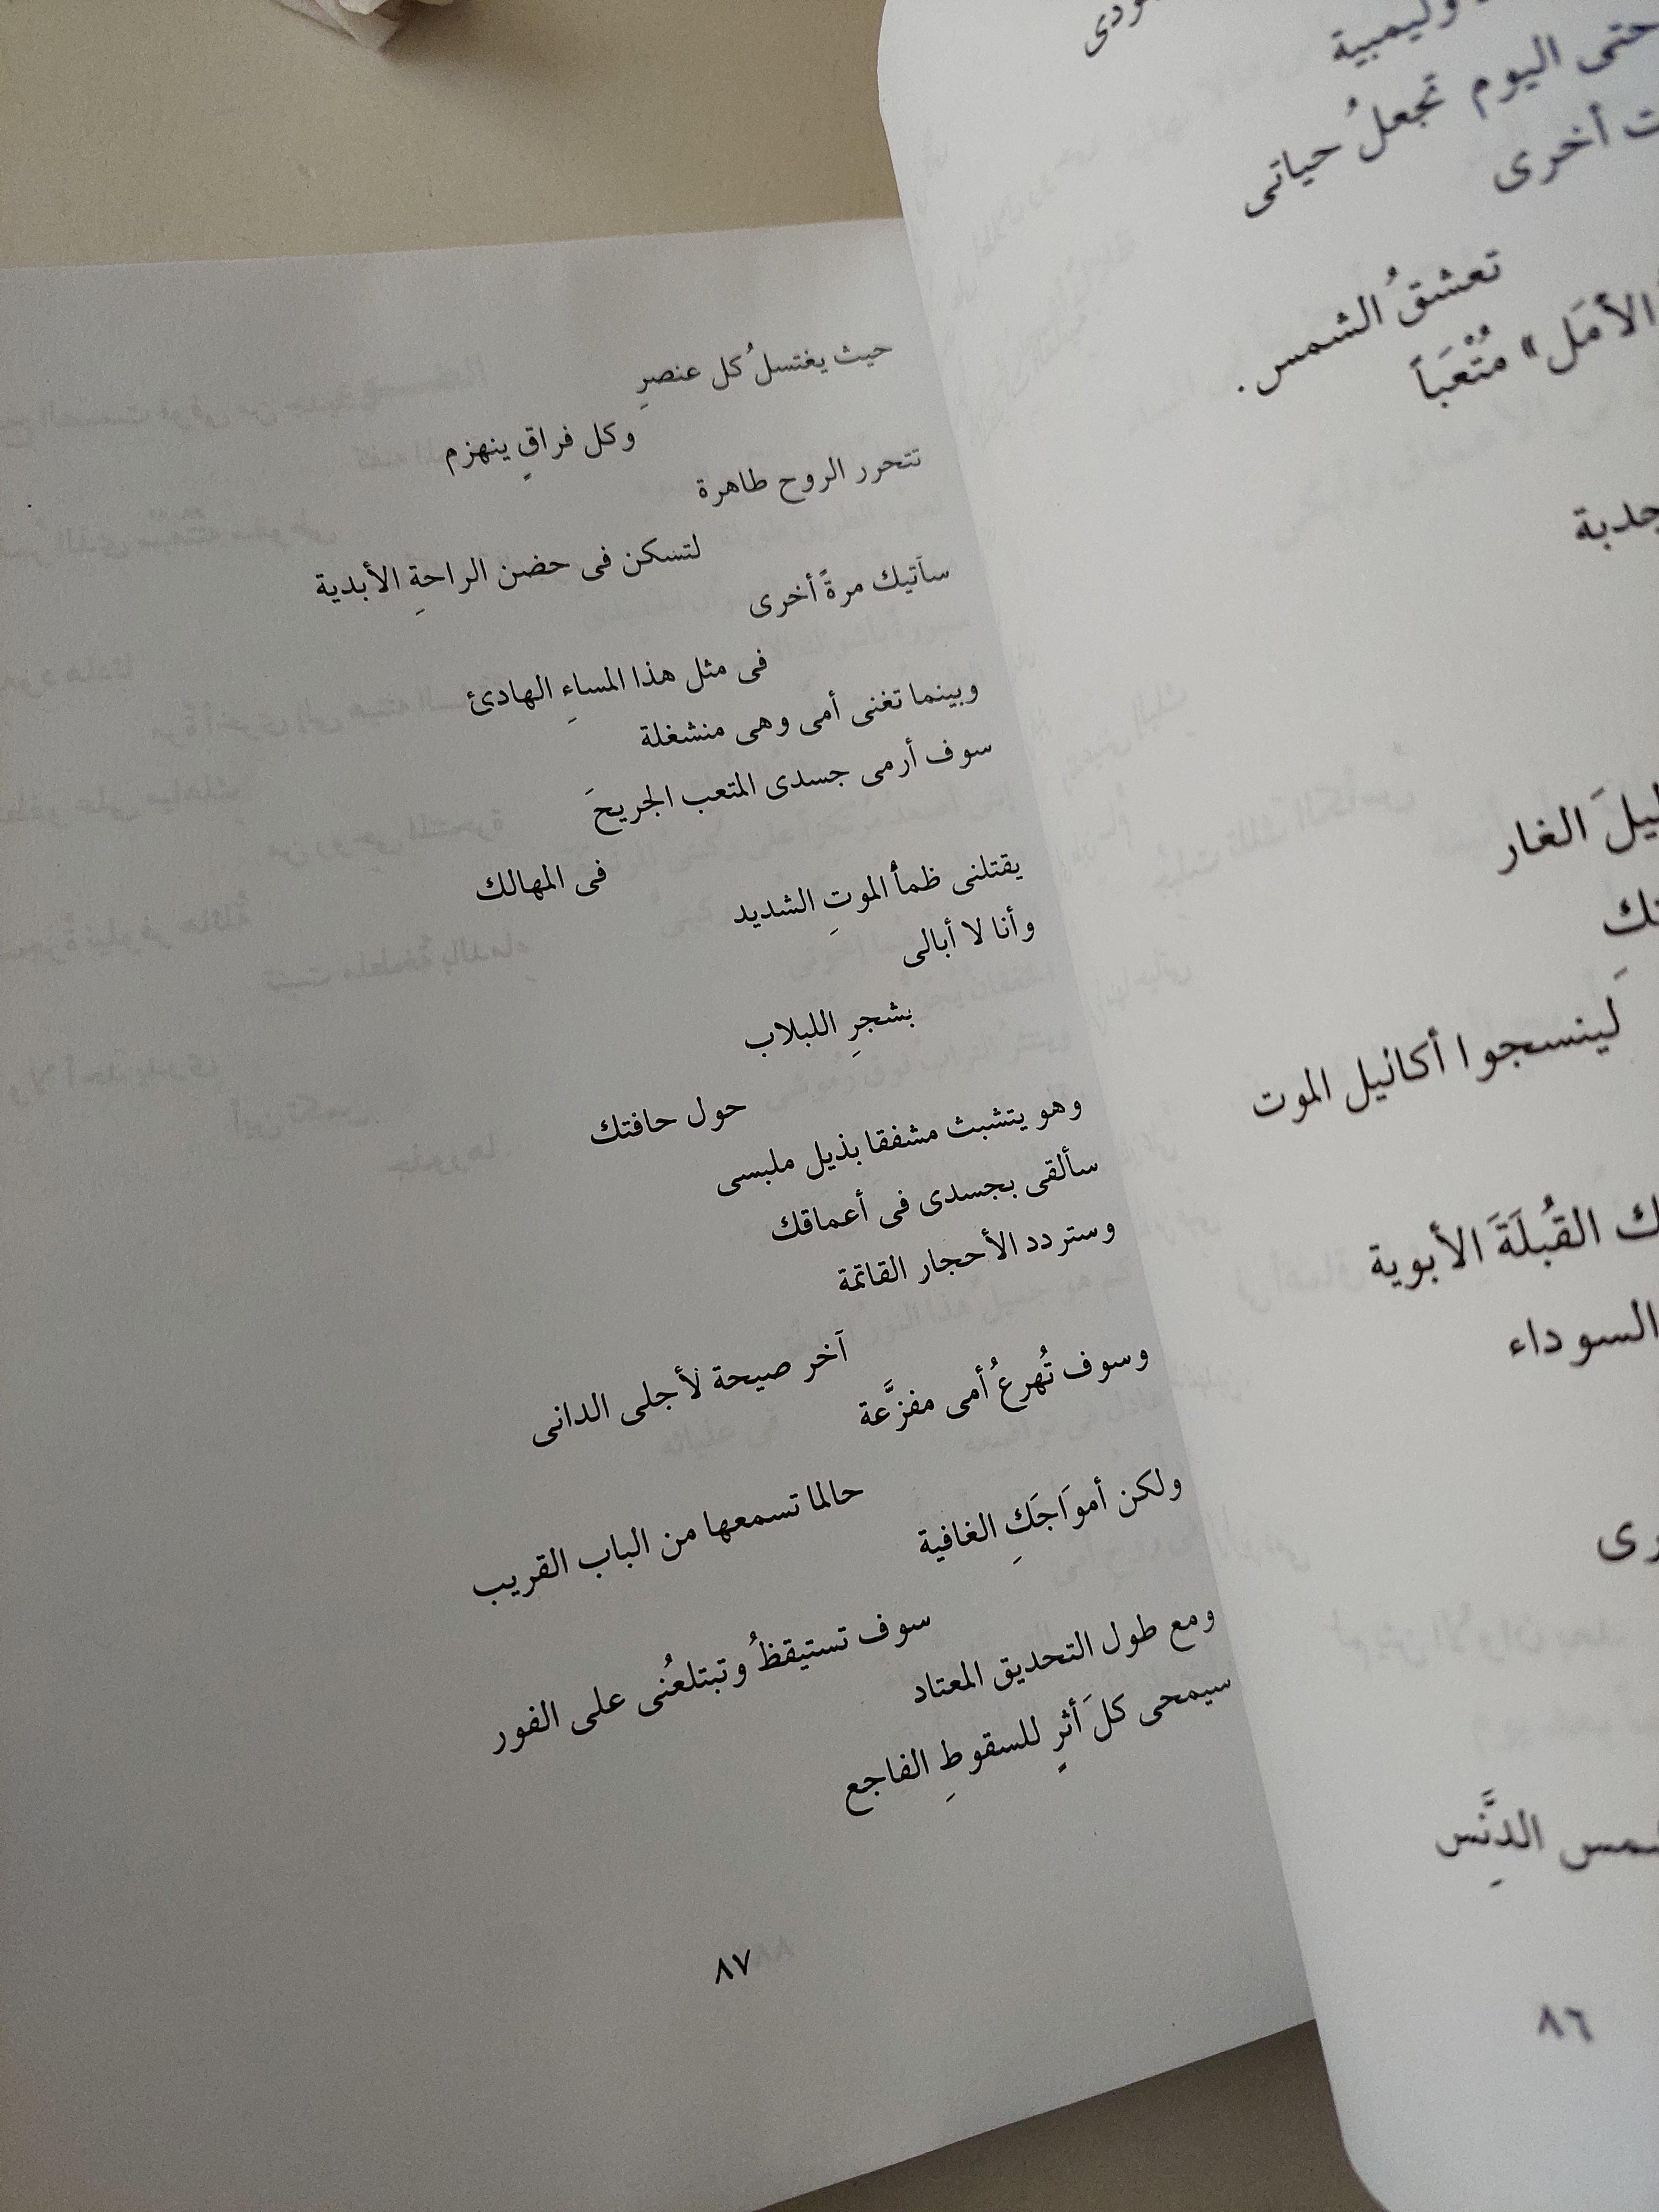 حتى اليوم تجعلُ حياتى
أخرى
تعشقُ الشمس.
الأمَل» مُتْعَباً
الغار
لينسجوا أكاليل الموت
القُبلَةَ الأبوية
السوداء
الدَّنِس
٨٦
حيث يغتسلُ كل عنصرِ
وكل فراقٍ ينهزم
تتحرر الروح طاهرة
لتسكن فى حضن الراحةِ الأبدية
سآتيك مرةً أخرى
فى مثل هذا المساءِ الهادئ
وبينما تغنى أمى وهى منشغلة
سوف أرمى جسدى المتعب الجريحَ
فى المهالك
يقتلنى ظمأُ الموتِ الشديد
وأنا لا أبالى
بشجرِ اللبلاب
حول حافتك
وهو يتشبث مشفقا بذيل ملبسى
سألقى بجسدى فى أعماقك
وستردد الأحجار القاتمة
آخر صيحة لأجلى الدانى
وسوف تُهرعُ أمى مفزَّعة
حالما تسمعها من الباب القريب
ولكن أموَاجَكِ الغافية
سوف تستيقظُ وتبتلعُنى على الفور
ومع طول التحديق المعتاد
سيمحى كلَ أثرٍ للسقوطِ الفاجع
٨٧